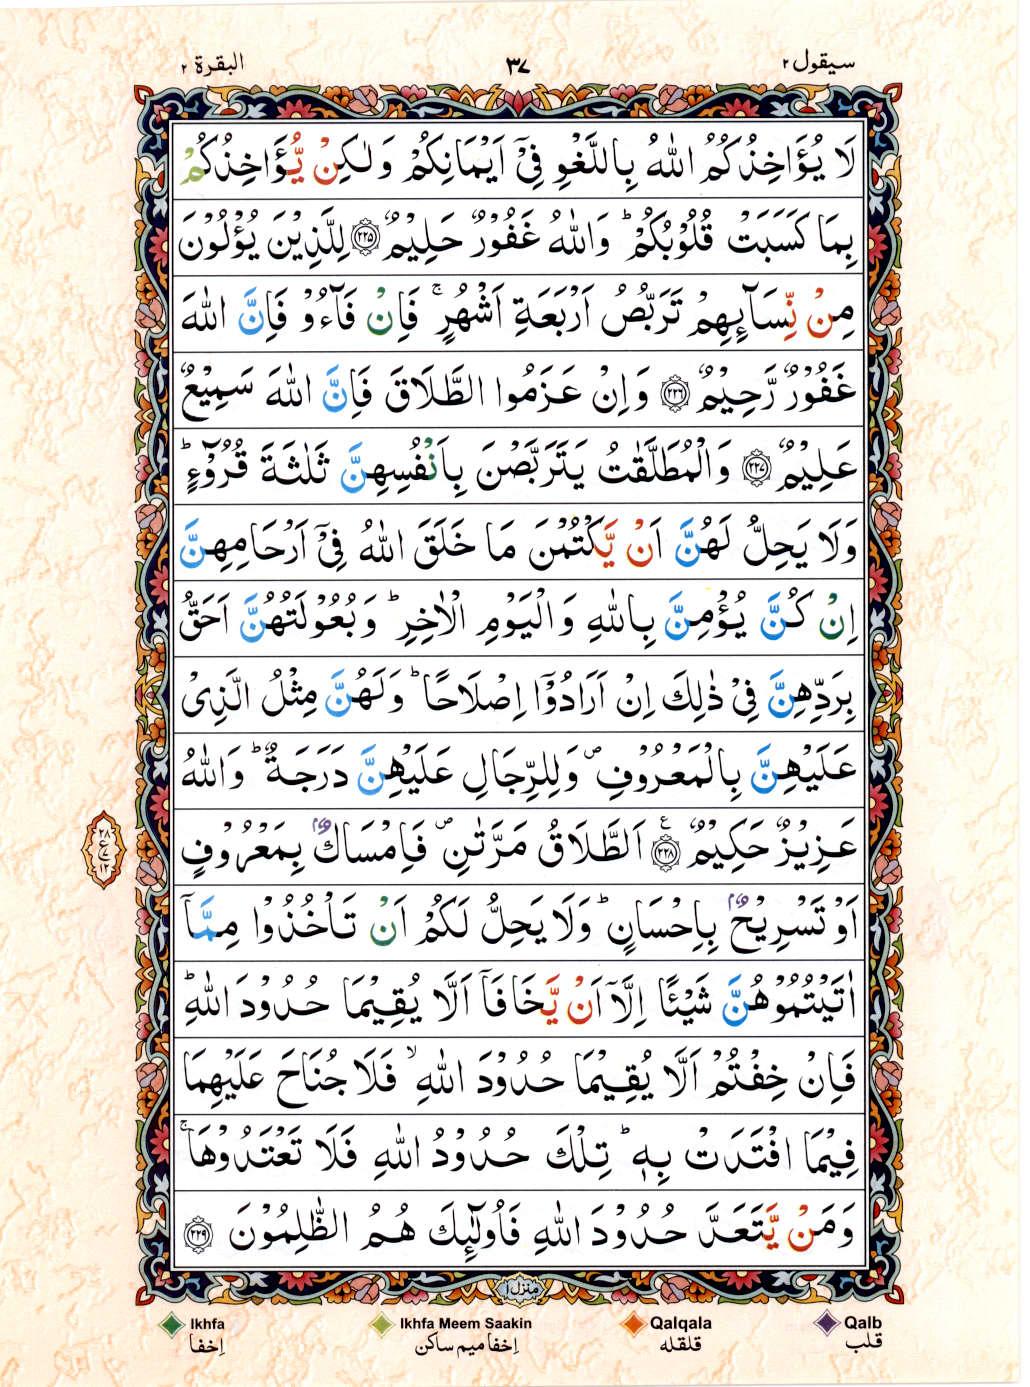 سيقول ٢
٣٧
البقرة ٢
لَا يُؤَاخِذُكُمُ اللّٰهُ بِاللَّغْوِ فِىْٓ اَيْمَانِكُمْ وَلٰكِنْ يُّؤَاخِذُكُمْ
بِمَا كَسَبَتْ قُلُوْبُكُمْ ؕ وَاللّٰهُ غَفُوْرٌ حَلِيْمٌ ﴿٢٢٥﴾ لِلَّذِيْنَ يُؤْلُوْنَ
مِنْ نِّسَآئِهِمْ تَرَبُّصُ اَرْبَعَةِ اَشْهُرٍ ۚ فَاِنْ فَآءُوْ فَاِنَّ اللّٰهَ
غَفُوْرٌ رَّحِيْمٌ ﴿٢٢٦﴾ وَاِنْ عَزَمُوا الطَّلَاقَ فَاِنَّ اللّٰهَ سَمِيْعٌ
عَلِيْمٌ ﴿٢٢٧﴾ وَالْمُطَلَّقٰتُ يَتَرَبَّصْنَ بِاَنْفُسِهِنَّ ثَلٰثَةَ قُرُوْٓءٍ ؕ
وَلَا يَحِلُّ لَهُنَّ اَنْ يَّكْتُمْنَ مَا خَلَقَ اللّٰهُ فِىْٓ اَرْحَامِهِنَّ
اِنْ كُنَّ يُؤْمِنَّ بِاللّٰهِ وَالْيَوْمِ الْاٰخِرِ ؕ وَبُعُوْلَتُهُنَّ اَحَقُّ
بِرَدِّهِنَّ فِىْ ذٰلِكَ اِنْ اَرَادُوْٓا اِصْلَاحًا ؕ وَلَهُنَّ مِثْلُ الَّذِىْ
عَلَيْهِنَّ بِالْمَعْرُوْفِ ۪ وَلِلرِّجَالِ عَلَيْهِنَّ دَرَجَةٌ ؕ وَاللّٰهُ
عَزِيْزٌ حَكِيْمٌ ﴿٢٢٨﴾ ع اَلطَّلَاقُ مَرَّتٰنِ ۪ فَاِمْسَاكٌۢ بِمَعْرُوْفٍ
٢٨
ع
١٢
اَوْ تَسْرِيْحٌۢ بِاِحْسَانٍ ؕ وَلَا يَحِلُّ لَكُمْ اَنْ تَاْخُذُوْا مِمَّآ
اٰتَيْتُمُوْهُنَّ شَيْـًٔا اِلَّآ اَنْ يَّخَافَآ اَلَّا يُقِيْمَا حُدُوْدَ اللّٰهِ ؕ
فَاِنْ خِفْتُمْ اَلَّا يُقِيْمَا حُدُوْدَ اللّٰهِ ۙ فَلَا جُنَاحَ عَلَيْهِمَا
فِيْمَا افْتَدَتْ بِهٖ ؕ تِلْكَ حُدُوْدُ اللّٰهِ فَلَا تَعْتَدُوْهَا ۚ
وَمَنْ يَّتَعَدَّ حُدُوْدَ اللّٰهِ فَاُولٰٓئِكَ هُمُ الظّٰلِمُوْنَ ﴿٢٢٩﴾
منزل ١
Ikhfa
Ikhfa Meem Saakin
Qalqala
Qalb
اِخفا
اِخفا ميم ساكن
قلقله
قلب